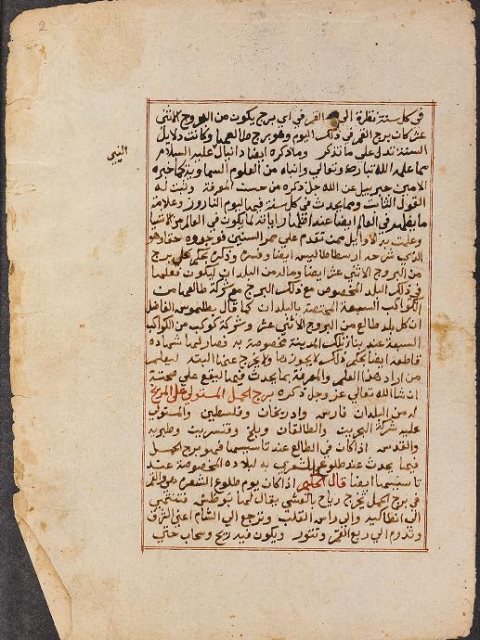 2
في كل سنة نظرة الى القمر في اي برج يكون من البروج الاثني
عشر كان برج القمر في ذلك اليوم وهو برج طالعها وكانت دلايل
السنة تدل على ما نذكر وما ذكره ايضا دانيال عليه السلام
النبي
مما علمه الله تبارك وتعالى واتياه من العلوم السماوية كما خبره
الامين جبرييل عن الله جل ذكره من حيث المعرفة وثبت له
القول الثابت وما يحدث في كل سنة فيما ليوم الناروز وعلامة
ما يظهر في العالم ايضا عند
وعلمت به الاوايل ممن تقدم على ممر السنين فوجدوه حقا وهو
الذي شرحه ارسطاطاليس ايضا وفسره وذكره بحكم على برج
من البروج الاثني عشر ايضا وماله من البلدان ليكون فعلها
في ذلك البلد المخصوص مع ذلك البرج مع شركة طالعها من
الكواكب السبعة المختصة بالبلدان كما قال بطلميوس الفاضل
ان كل بلد طالع من البروج الاثني عشر وشركة كوكب من الكواكب
السبعة عند بنا تلك المدينة مخصوصة به فصار لها شهادة
قاطعة ايضا لحكم ذلك لا يجوزها ولا يخرج عنها البتة ليعلم
من اراد هذا العلم والمعرفة بما يحدث فيها ليقع على صحته
ان شا الله تعالى عز وجل ذكره برج الحمل المستولى على المريخ
له من البلدان فارس واذربيجان وفلسطين والمستولى
عليه شركة البحرين والطالقان وبلخ وقنسرين وطبريه
والقدس اذا كان في الطالع عند تاسيسها فهو برج الحمل
فيما يحدث عند طلوع الشعرى به لبلاده المخصوصة عند
تاسيسها ايضا قال الحكيم اذا كان يوم طلوع الشعره والقمر
في برج الحمل تخرج رياح بالعشي يقال لها بوطس فتنتهي
الى انطاكيه والى راس القلب وترجع الى الشام اعني الشرق
وتدوم الى ربع القمر وتثور ويكون فيه ريح وسحاب حتى